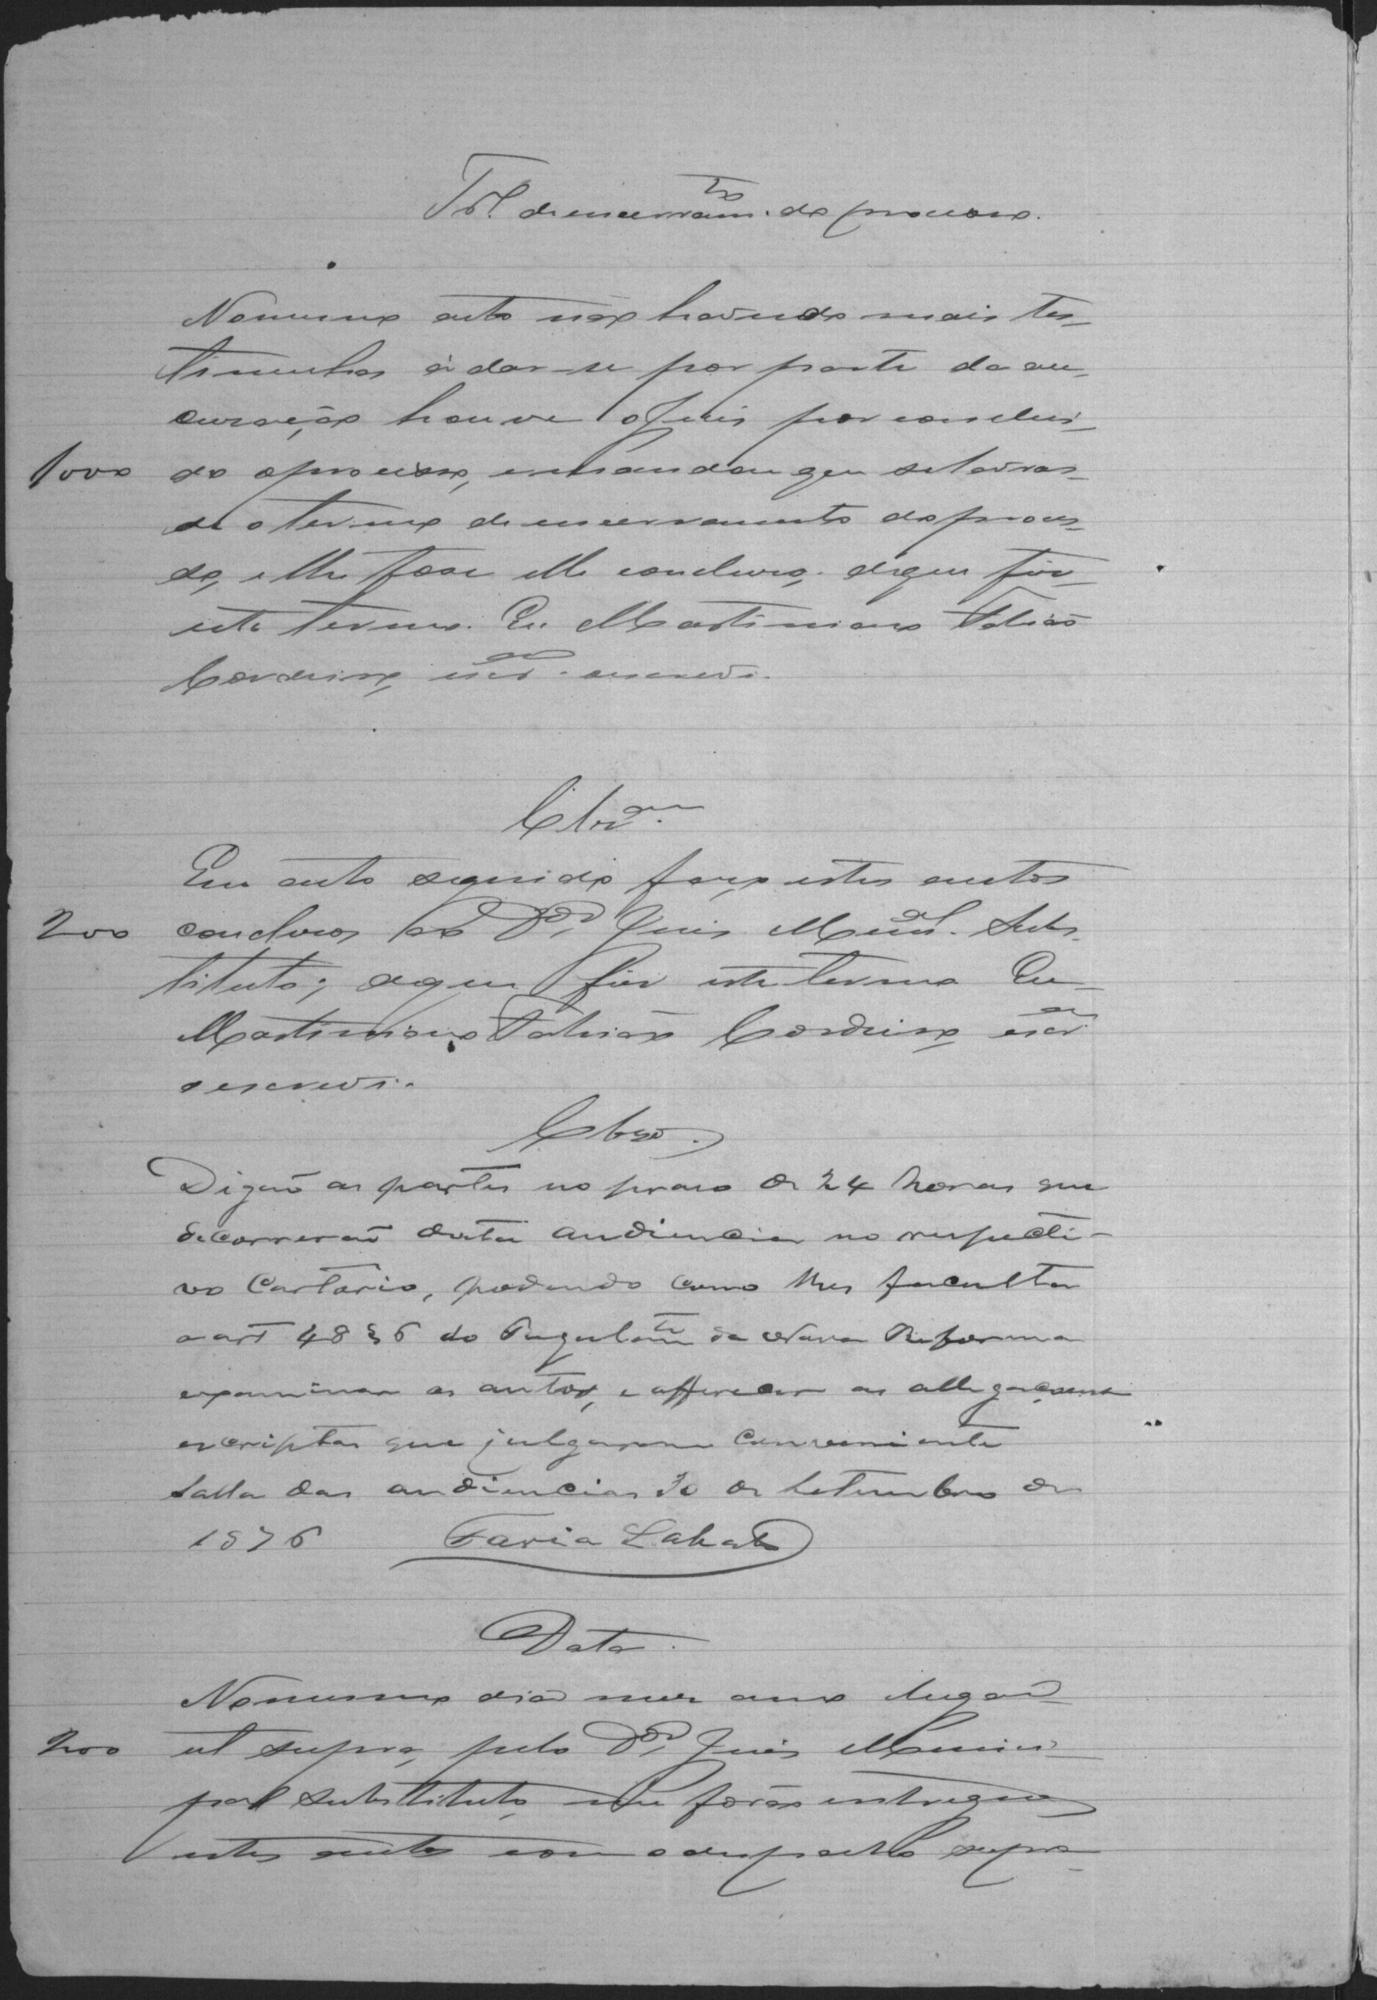 T.º de encerram.to do processo.
No mesmo acto não havendo mais tes-
timunhas á dar-se por parte da ac-
cusação houve o Juis por conclui-
1000 do o processo, e mandou que se lavras-
se o termo de encerramento do proces-
so, e lhe fosse concluso, do que fis
este termo. Eu Martiniano Fabião
Cordeiro, escr.am o escrevi.
Cls.am
Em acto seguido faço estes autos
200 conclusos ao D.or Juis Mun.al Subs-
tituto; do que fis este termo Eu
Martiniano Fabião Cordeiro, escr.am
o escrevi.
Clsos.
Digaõ as partes no praso de 24 horas que
decorreraõ desta audiencia no respecti-
vo Cartorio, podendo como lhes faculta
o art 48 § 6 do Regulam.to da Nova Reforma
examinar os autos, e offerecer as allegaçoens
escriptas que julgarem conveniente
Salla das audiencias 30 de Setembro de
1876 Faria Lobato
Data.
No mesmo dia mes anno e lugar
200 ut supra, pelo D.or Juis Munici-
pal substituto, me foraõ entregues
estes autos com o despacho supra